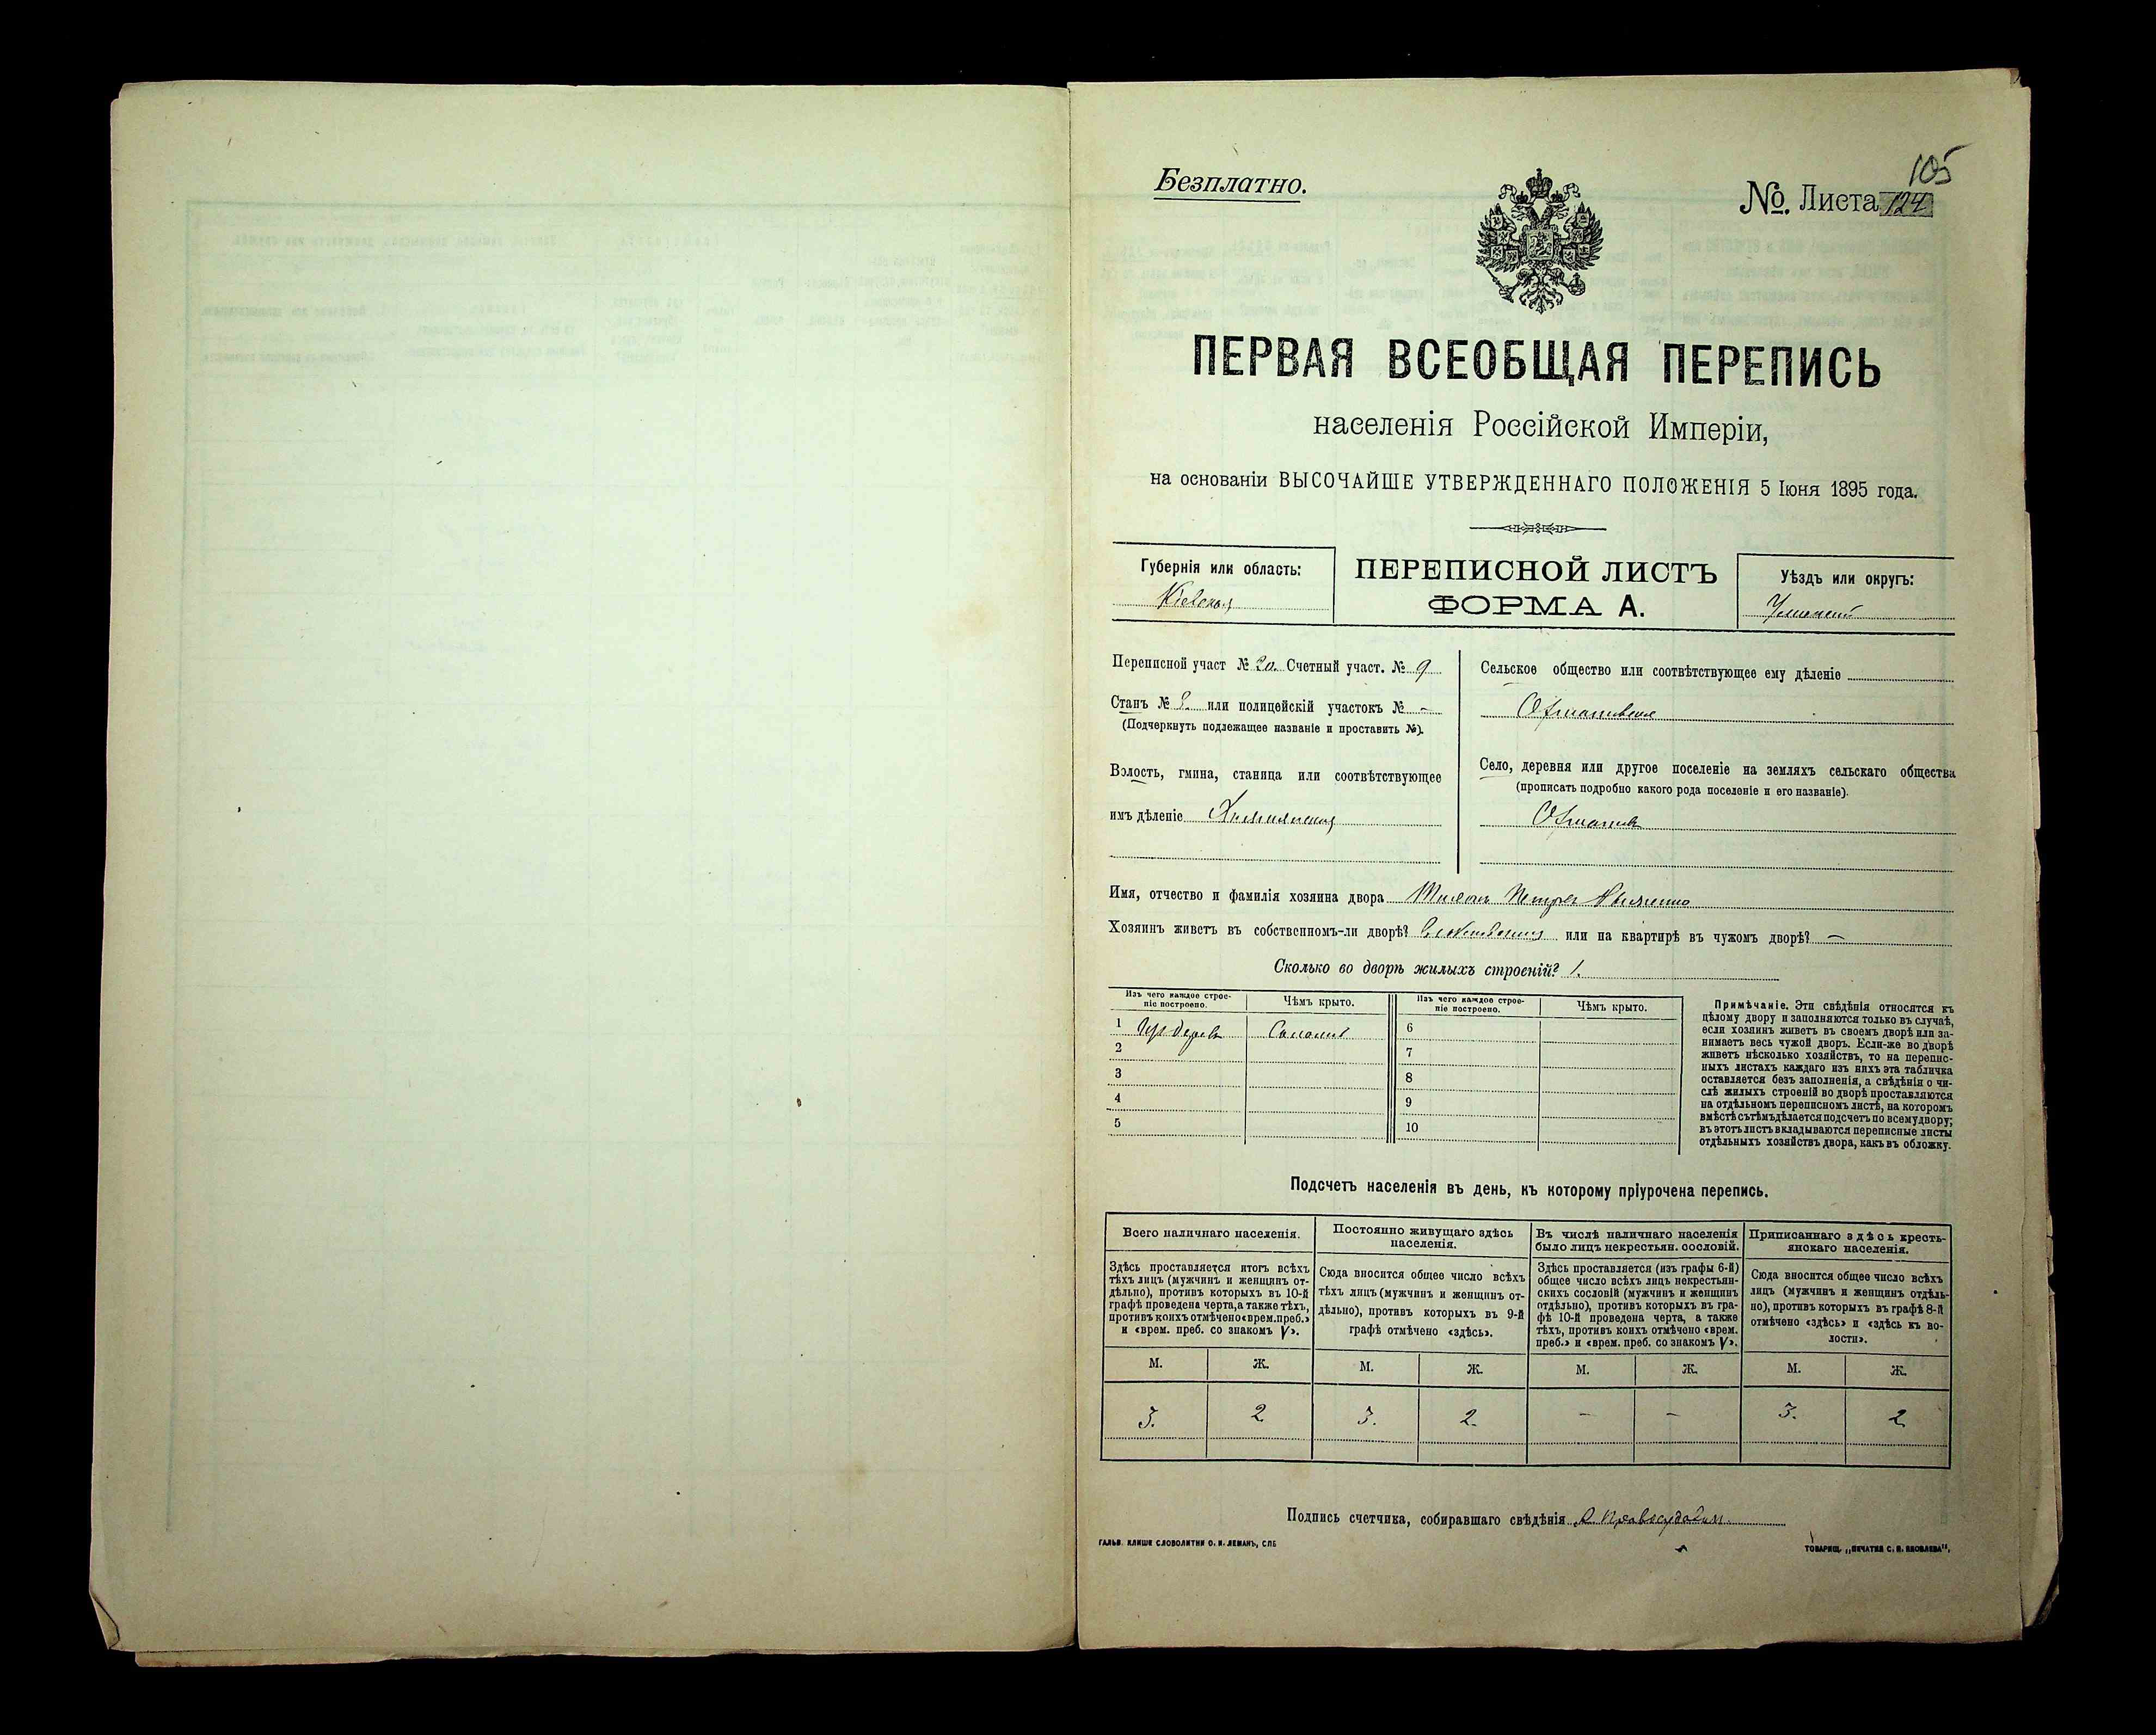 105
Безплатно.
№. Листа 124
ПЕРВАЯ ВСЕОБЩАЯ ПЕРЕПИСЬ
населенія Россійской Имперіи,
на основаніи ВЫСОЧАЙШЕ УТВЕРЖДЕННАГО ПОЛОЖЕНІЯ 5 Іюня 1895 года.
Губернія или область:
Кіевская
ПЕРЕПИСНОЙ ЛИСТЪ
ФОРМА А.
Уѣздъ или округъ:
Уманскій
Переписной участ № 20. Счетный участ. № 9
Станъ № или полицейскій участокъ № -
(Подчеркнуть подлежащее названіе и проставить №).
Волость, гмина, станица или соотвѣтствующее
имъ дѣленіе
Сельское общество или соотвѣтствующее ему дѣленіе
Село, деревня или другое поселеніе на земляхъ сельскаго общества
(прописать подробно какого рода поселеніе и его названіе).
Имя, отчество и фамилія хозяина двора Петровъ
Хозяинъ живетъ въ собственномъ-ли дворѣ? или на квартирѣ въ чужомъ дворѣ? —
Сколько во дворѣ жилыхъ строеній? 1.
Изъ чего каждое строе-
ніе построено.
Чѣмъ крыто.
Изъ чего каждое строе-
ніе построено.
Чѣмъ крыто.
1 Изъ дерева Соломою
2
3
4
5
6
7
8
9
10
Примѣчаніе. Эти свѣдѣнія относятся къ
цѣлому двору и заполняются только въ случаѣ,
если хозяинъ живетъ въ своемъ дворѣ или за-
нимаетъ весь чужой дворъ. Если-же во дворѣ
живетъ нѣсколько хозяйствъ, то на перепис-
ныхъ листахъ каждаго изъ нихъ эта табличка
оставляется безъ заполненія, а свѣдѣнія о чи-
слѣ жилыхъ строеній во дворѣ проставляются
на отдѣльномъ переписномъ листѣ, на которомъ
вмѣстѣ съ тѣмъ дѣлается подсчетъ по всему двору;
въ этотъ листъ вкладываются переписные листы
отдѣльныхъ хозяйствъ двора, какъ въ обложку.
Подсчетъ населенія въ день, къ которому пріурочена перепись.
Всего наличнаго населенія.
Здѣсь проставляется итогъ всѣхъ
тѣхъ лицъ (мужчинъ и женщинъ от-
дѣльно), противъ которыхъ въ 10-й
графѣ проведена черта, а также тѣхъ,
противъ коихъ отмѣчено «врем. преб.»
и «врем. преб. со знакомъ V».
Постоянно живущаго здѣсь
населенія.
Сюда вносится общее число всѣхъ
тѣхъ лицъ (мужчинъ и женщинъ от-
дѣльно), противъ которыхъ въ 9-й
графѣ отмѣчено «здѣсь».
Въ числѣ наличнаго населенія
было лицъ некрестьян. сословій.
Здѣсь проставляется (изъ графы 6-й)
общее число всѣхъ лицъ некрестьян-
скихъ сословій (мужчинъ и женщинъ
отдѣльно), противъ которыхъ въ гра-
фѣ 10-й проведена черта, а также
тѣхъ, противъ коихъ отмѣчено «врем.
преб.» и «врем. преб. со знакомъ V».
Приписаннаго здѣсь кресть-
янскаго населенія.
Сюда вносится общее число всѣхъ
лицъ (мужчинъ и женщинъ отдѣль-
но), противъ которыхъ въ графѣ 8-й
отмѣчено «здѣсь» и «здѣсь къ во-
лости».
М. Ж. М. Ж. М. Ж. М. Ж.
3. 2 3. 2. - - 3. 2.
Подпись счетчика, собиравшаго свѣдѣнія
ГАЛЬВ. КЛИШЕ СЛОВОЛИТНИ О. И. ЛЕМАНЪ, СПБ
ТОВАРИЩ. „ПЕЧАТНЯ С. П. ЯКОВЛЕВА“,